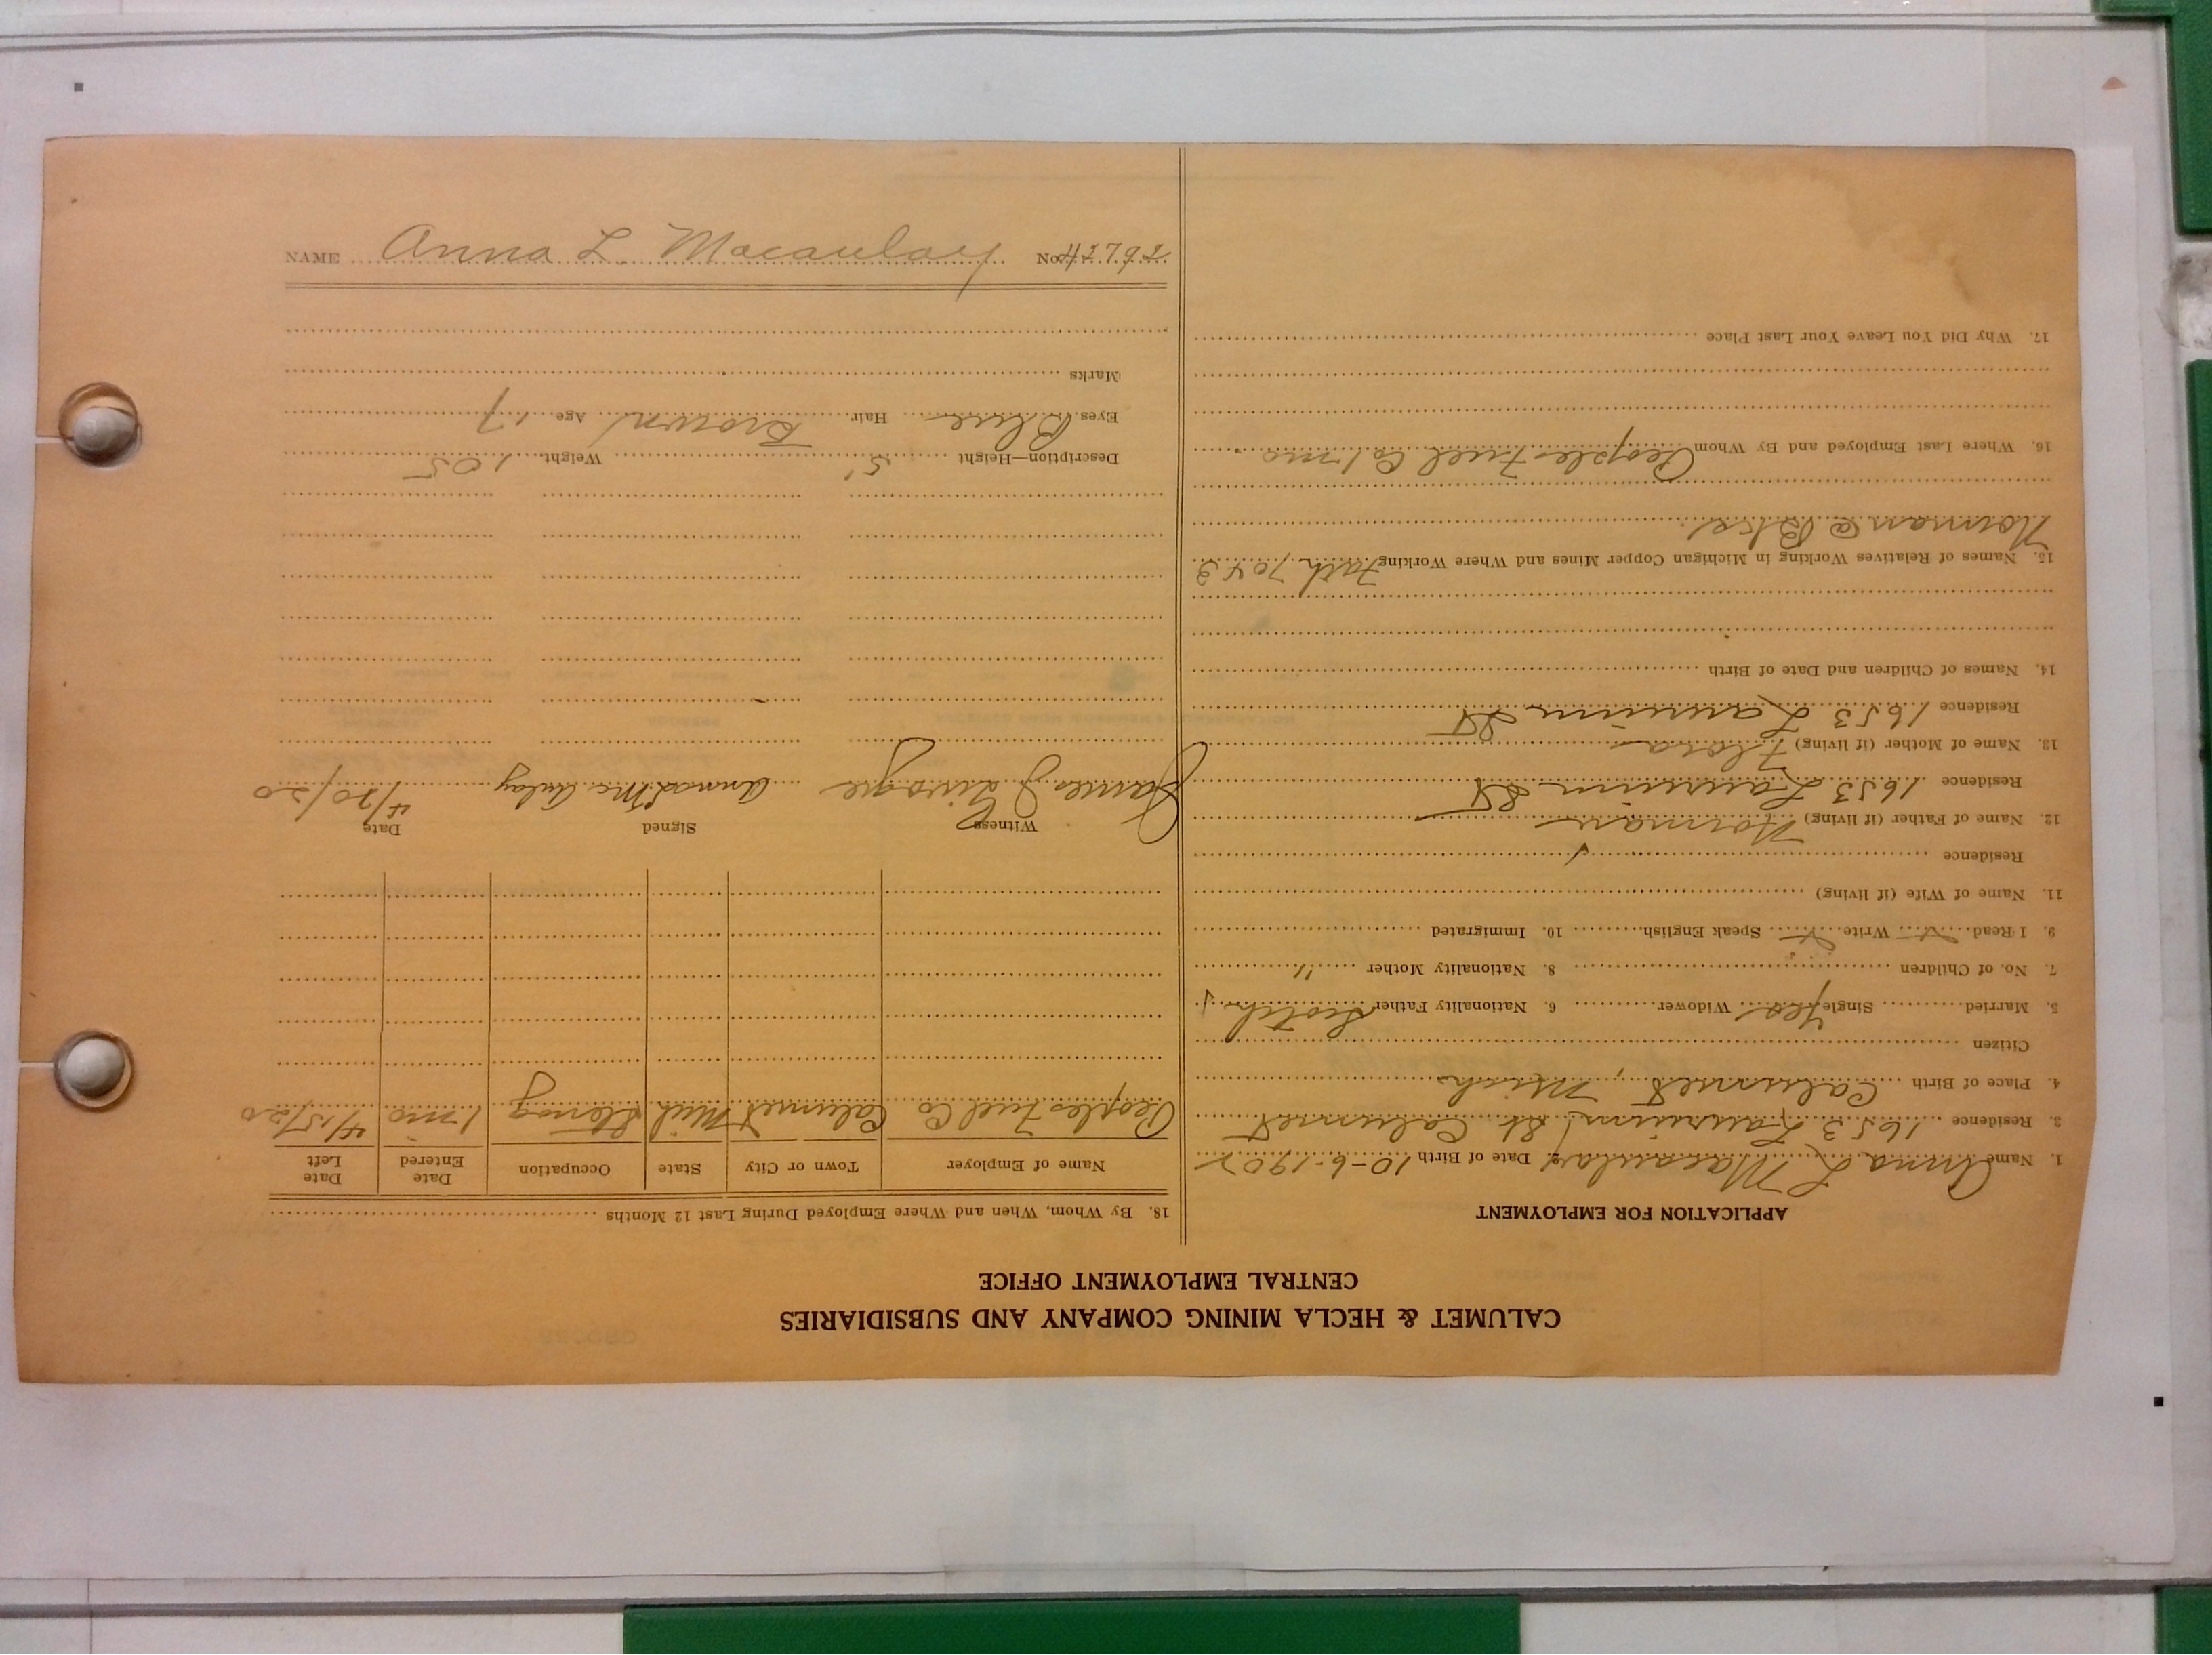 CALUMET & HECLA MINING COMPANY AND SUBSIDIARIES
CENTRAL EMPLOYMENT OFFICE
APPLICATION FOR EMPLOYMENT
1. Name Anna L Macaulay 2. Date of Birth 10-6-1902
3. Residence 1653 Laurium St Calumet
4. Place of Birth Calumet, Mich
Citizen
5. Married Single yes Widower 6. Nationality Father Scotch
7. No. of Children 8. Nationality Mother "
9. I Read Write Speak English 10. Immigrated
11. Name of Wife (if living)
Residence
12. Name of Father (if living) Norman
Residence 1653 Laurium St
13. Name of Mother (if living) Flora
Residence 1653 Laurium St
14. Names of Children and Date of Birth
15. Names of Relatives Working in Michigan Copper Mines and Where Working Fath 7043
Norman @
16. Where Last Employed and By Whom Peoples Fuel Co 1 mo
17. Why Did You Leave Your Last Place
18. By Whom, When and Where Employed During Last 12 Months
Name of Employer Town or City State Occupation Date Entered Date Left
Peoples Fuel Co Calumet Mich Stenog 1 mo 4/15/20
Witness Signed Date
James J Anna L Mc.Aulay 4/20/20
Description—Height 5' Weight 105
Eyes Blue Hair Brown Age 17
Marks
NAME Anna L. Macaulay No. 42792